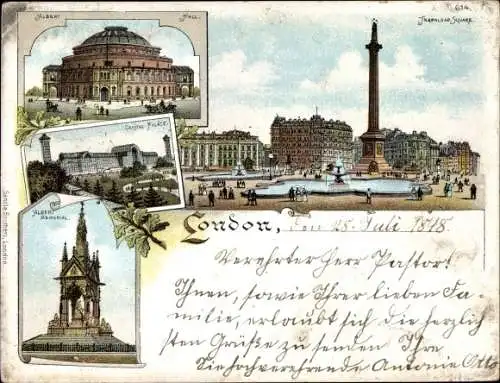 ALBERT HALL.
614.
TRAFALGAR SQUARE.
CRYSTAL PALACE.
ALBERT MEMORIAL
London, den 25. Juli 1898.
Verehrter Herr Pastor!
Ihnen, sowie Ihrer lieben Fa-
milie, erlaubt sich die herzlich
sten Grüße zu senden Ihre
Sie hochverehrende Antonie
London.